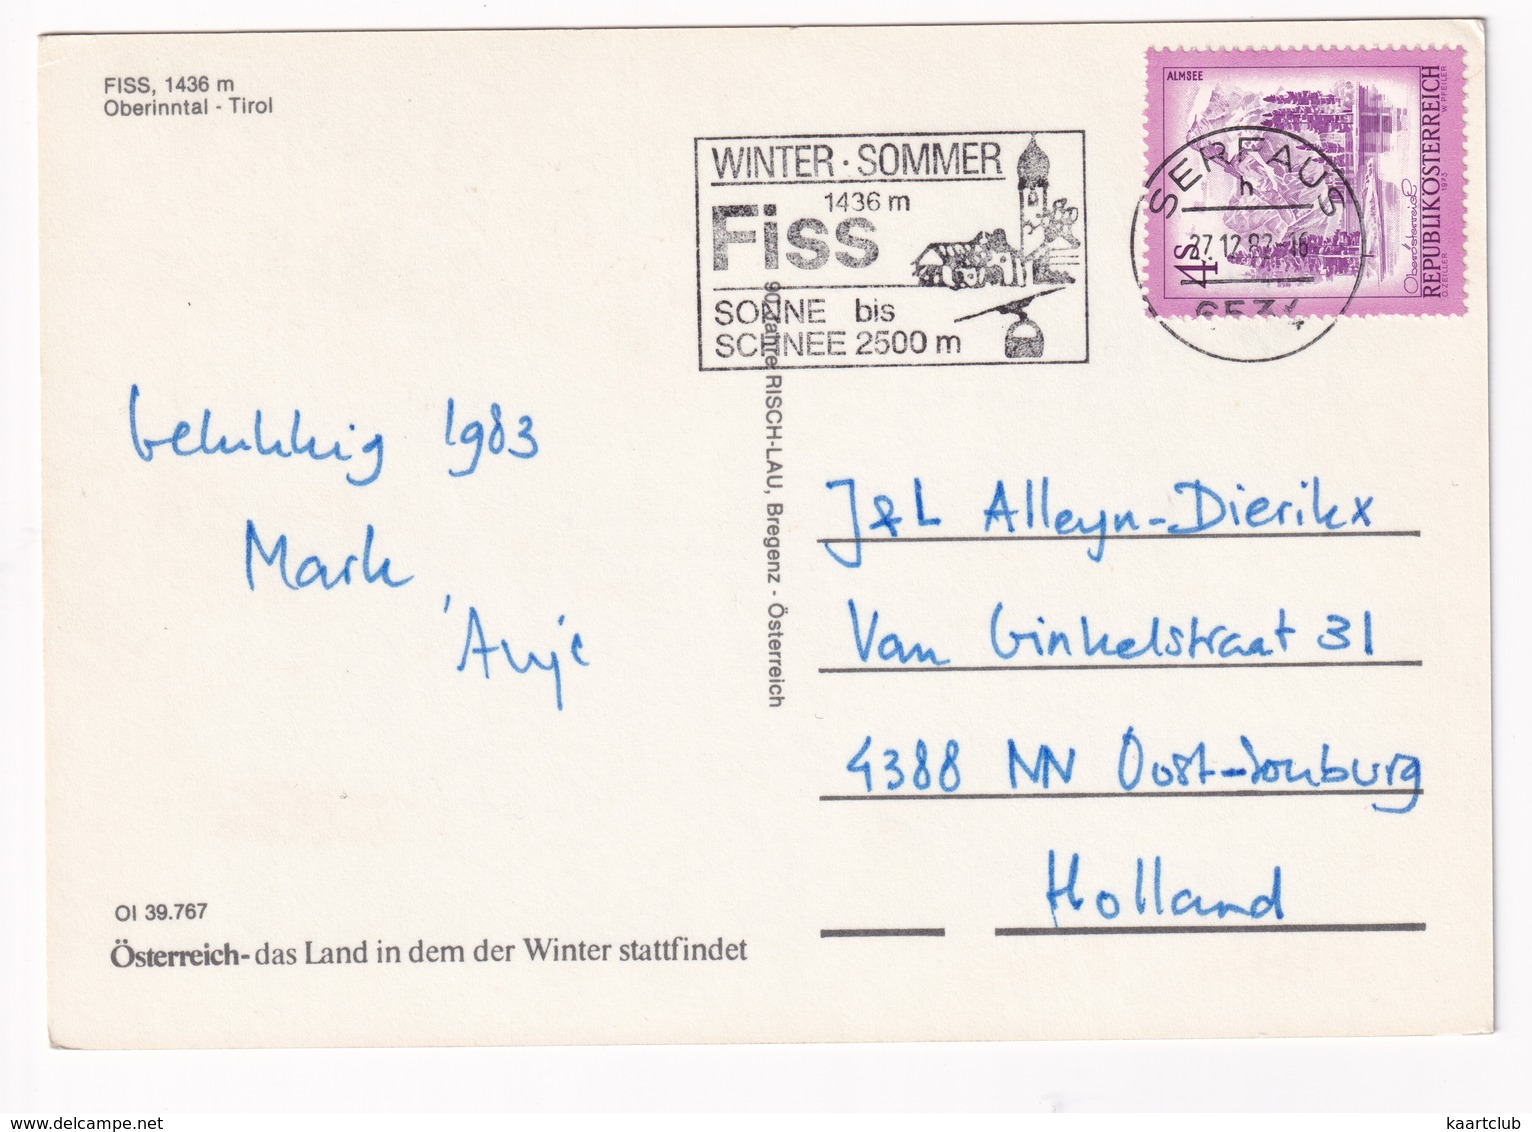 FISS, 1436 m
Oberinntal - Tirol
ALMSEE
REPUBLIK ÖSTERREICH
W. PFEILER
1973
O. ZEILLER
Oberösterreich
4 S
WINTER · SOMMER
1436 m
Fiss
SONNE bis
SCHNEE 2500 m
SERFAUS
h
27.12.82-16
6534
90 Jahre RISCH-LAU, Bregenz - Österreich
Gelukkig 1983
Mark
Anje
J & L Alleyn-Dierikx
Van Ginkelstraat 31
4388 NN Oost-Souburg
Holland
OI 39.767
Österreich- das Land in dem der Winter stattfindet
www.delcampe.net
kaartclub